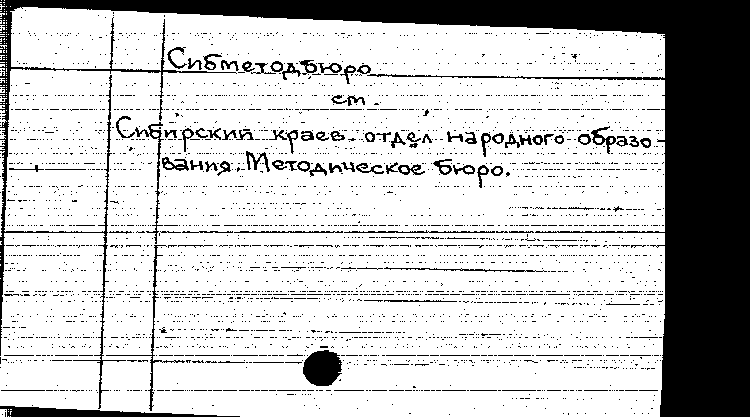 Сибметодбюро
см.
Сибирский краев. отдел народного образо-
вания. Методическое бюро.